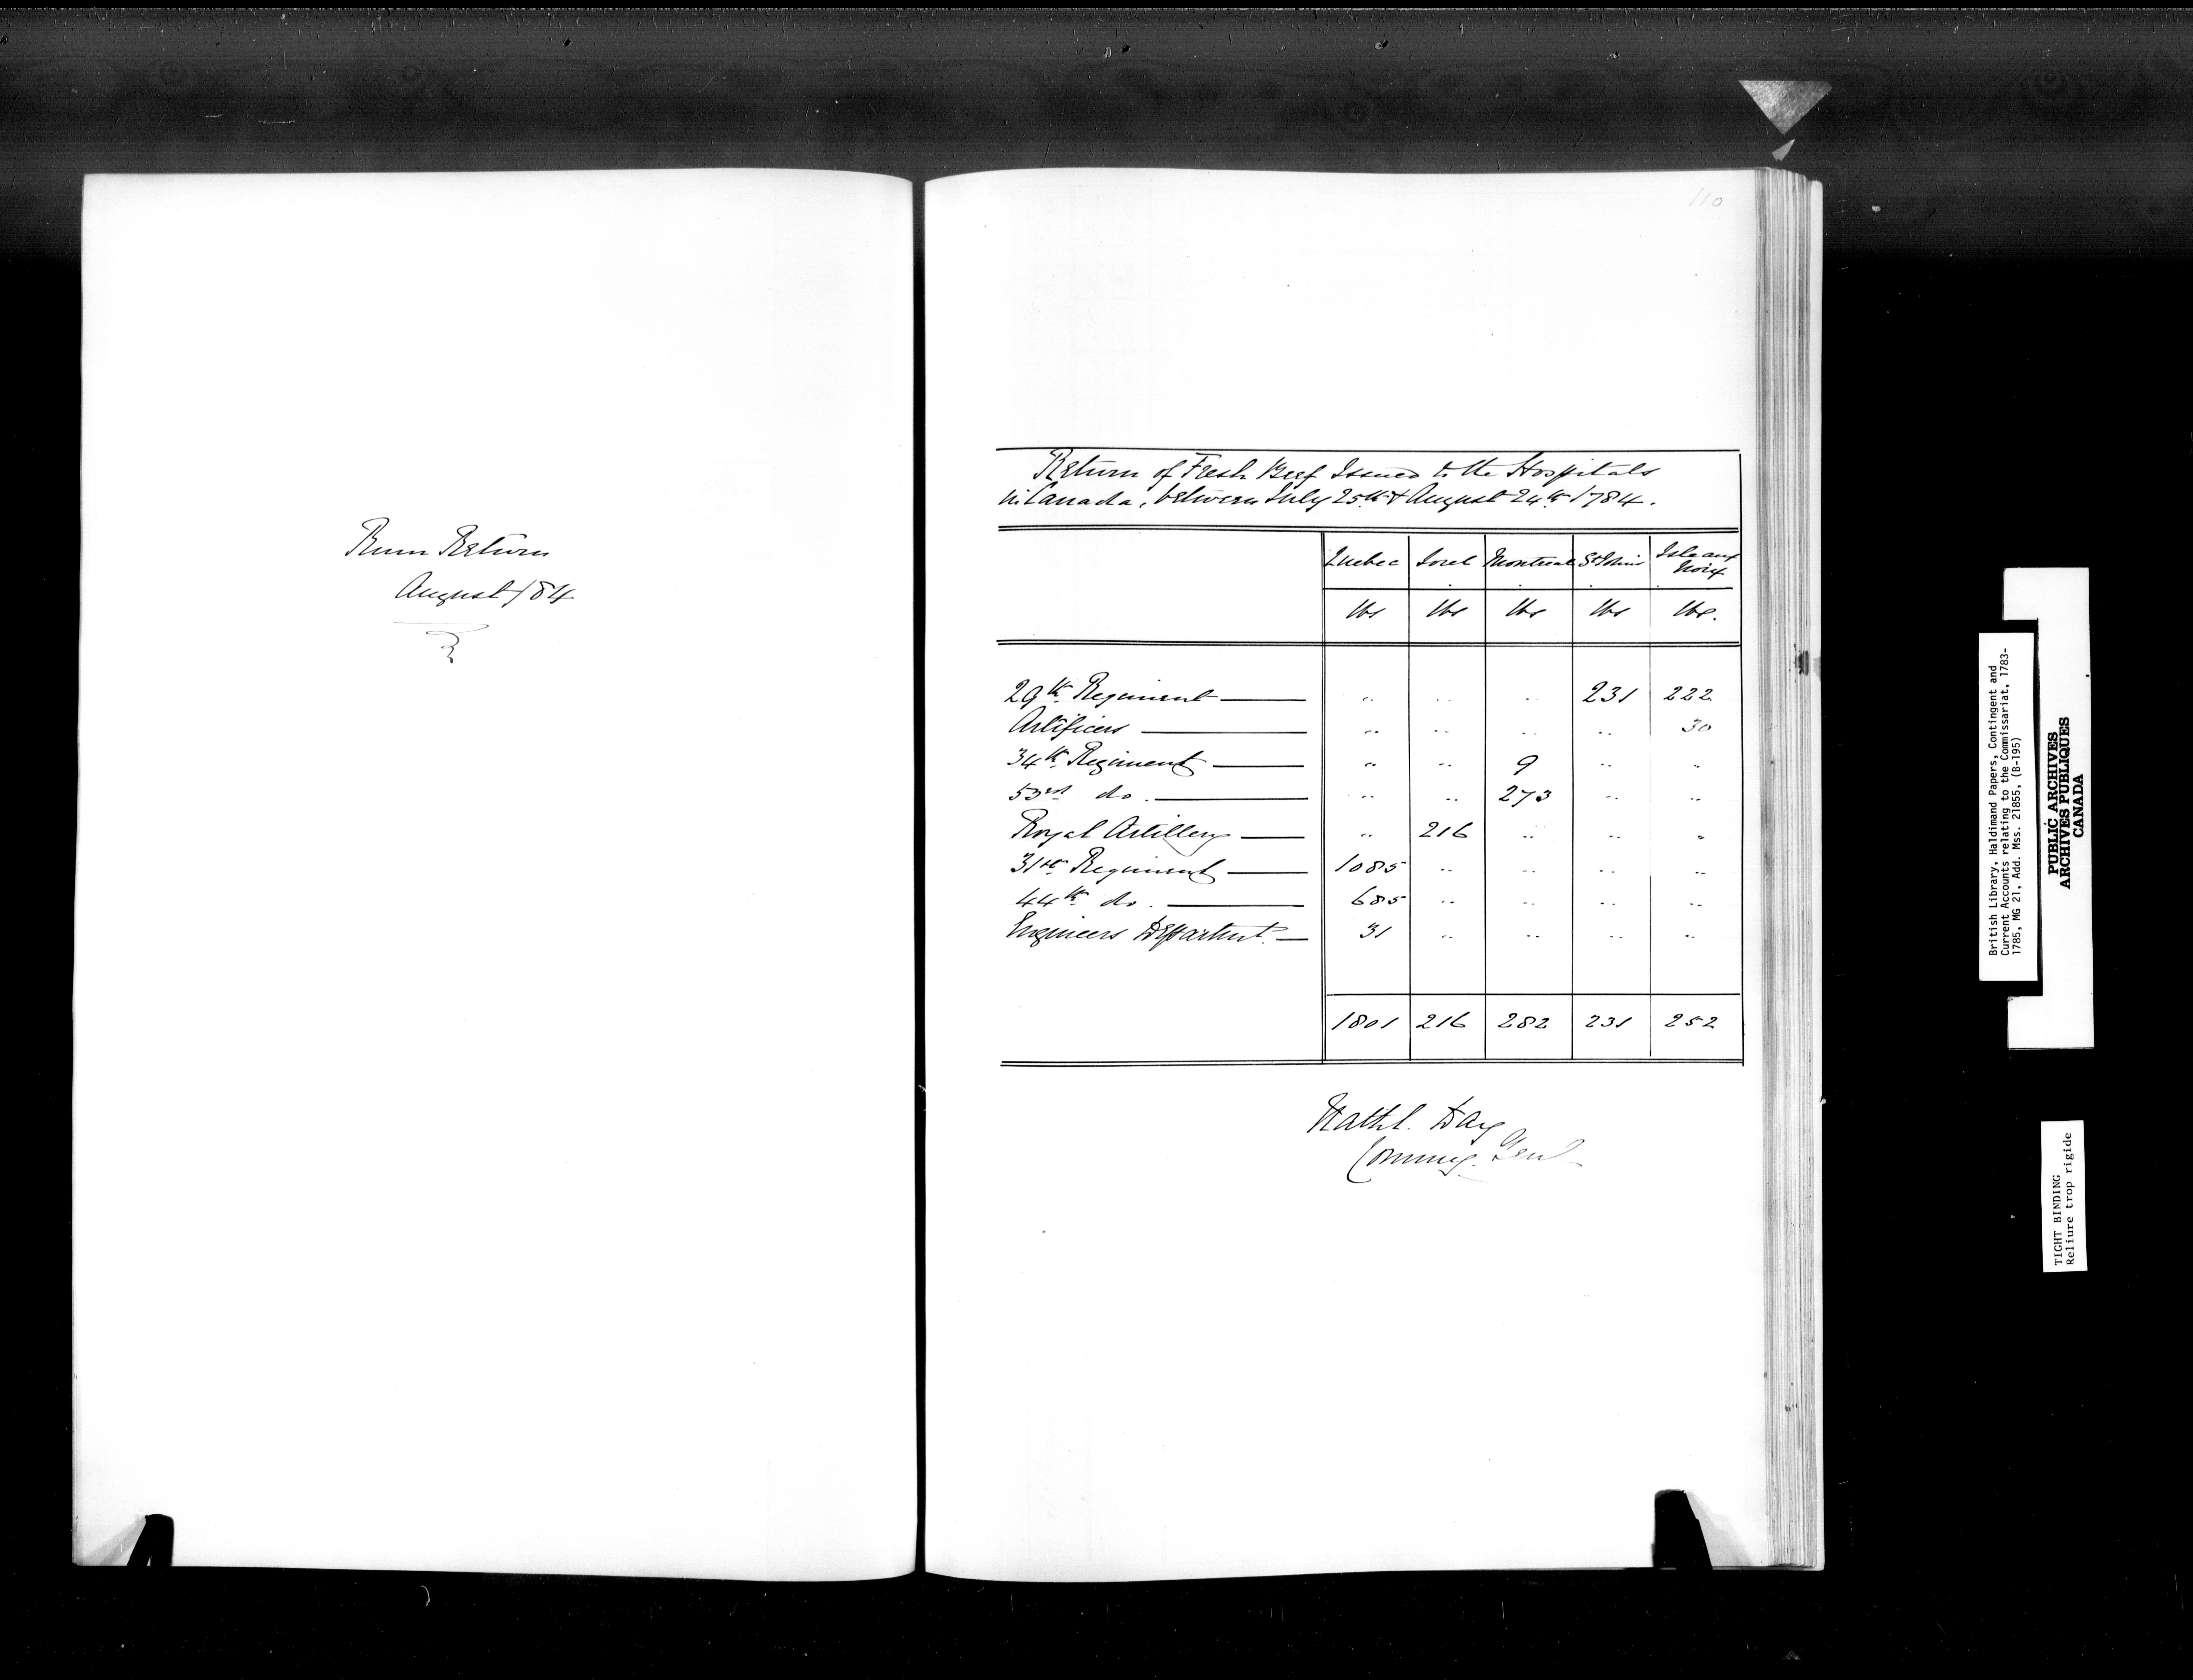 Rum Return
August /84
110
Return of Fresh Beef Issued to the Hospitals
in Canada, between July 25th & August 24th 1784.
Quebec Sorel Montreal St Johns Isle aux Noix
lbs lbs lbs lbs lbs.
29th Regiment — .. .. .. 231 222
Artificers — .. .. .. .. 30
34th Regiment — .. .. 9 .. ..
53rd do. — .. .. 273 .. ..
Royal Artillery — .. 216 .. .. ..
31st Regiment — 1085 .. .. .. ..
44th do. — 685 .. .. .. ..
Engineers Departmt. — 31 .. .. .. ..
1801 216 282 231 252
Nathl. Day
Commy. Genl
British Library, Haldimand Papers, Contingent and
Current Accounts relating to the Commissariat, 1783-
1785, MG 21, Add. Mss. 21855, (B-195)
PUBLIC ARCHIVES
ARCHIVES PUBLIQUES
CANADA
TIGHT BINDING
Reliure trop rigide